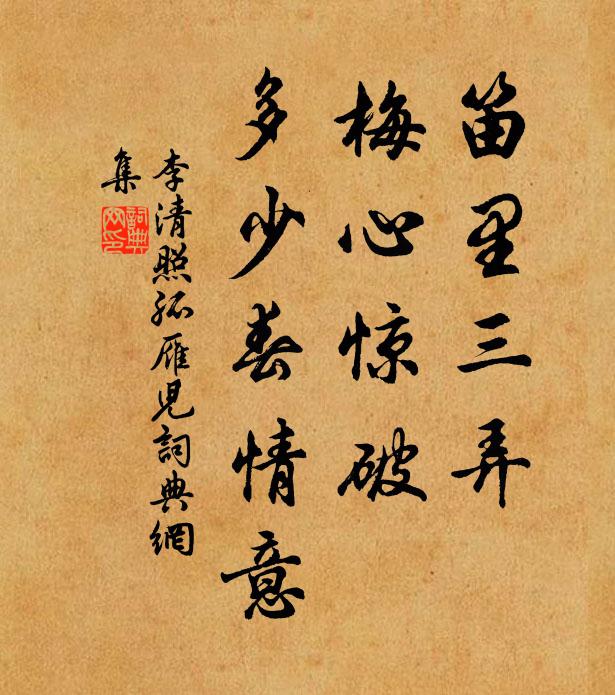 笛里三弄
梅心惊破
多少春情意
李清照孤雁児詞典網
集
詞典
网印